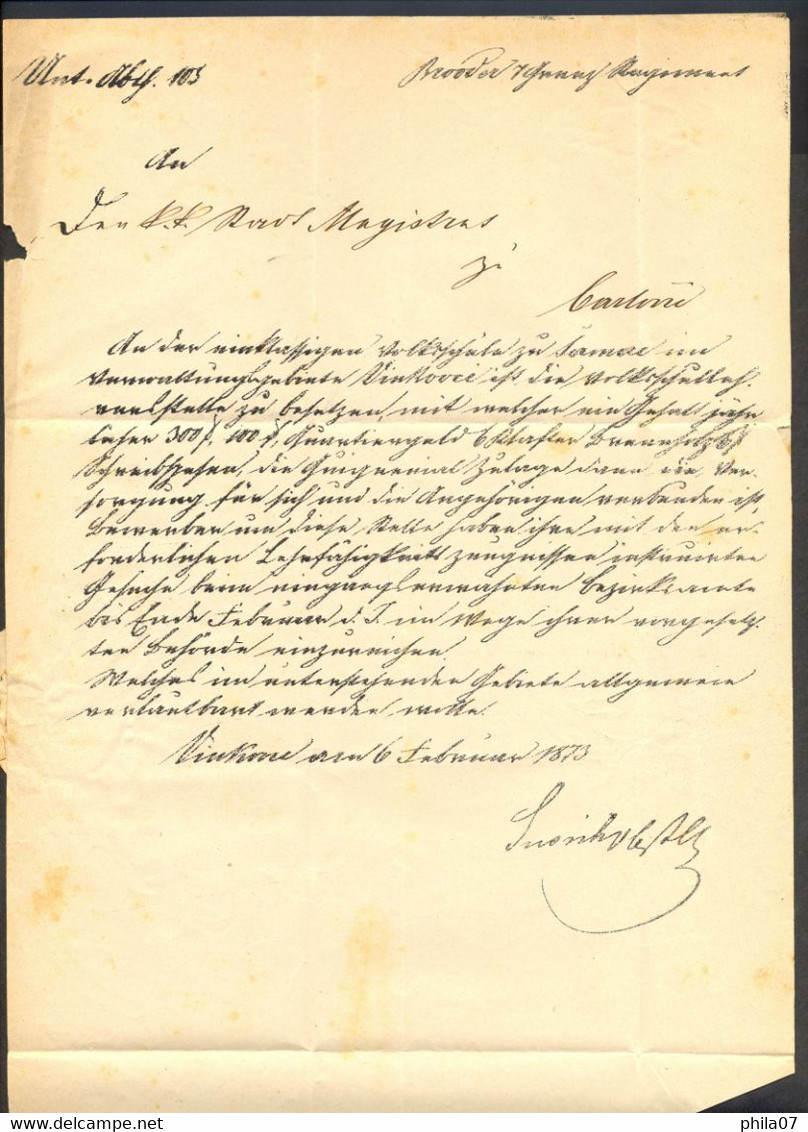 Unt. Abth. 103
Brooder 7 Grenz Regiment
An
Den k.k. Stadt Magistrat
zu
Carlovic
An der einklassigen Volksschule zu Samac im
Verwaltungsgebiete Vinkovce ist die Volksschulleh-
rersstelle zu besetzen, mit welcher ein Gehalt jähr
licher 300 f, 100 f, Quartiergeld 6 Klafter Brennholz 6 f
Schreibspesen, die Quinquenal Zulage dann die Ver-
sorgung für sich und die Angehörigen verbunden ist,
Bewerber um diese Stelle haben ihre mit den er-
forderlichen Lehrfähigkeits zeugnissen instruirten
Gesuche beim eingangserwähnten Bezirksamte
bis Ende Februar d. J. im Wege ihrer vorgesetz-
ten Behörde einzureichen
Welches im unterstehenden Gebiete allgemein
verlautbart werden wolle.
Vinkovce am 6 Februar 1873
delcampe.net
phila07